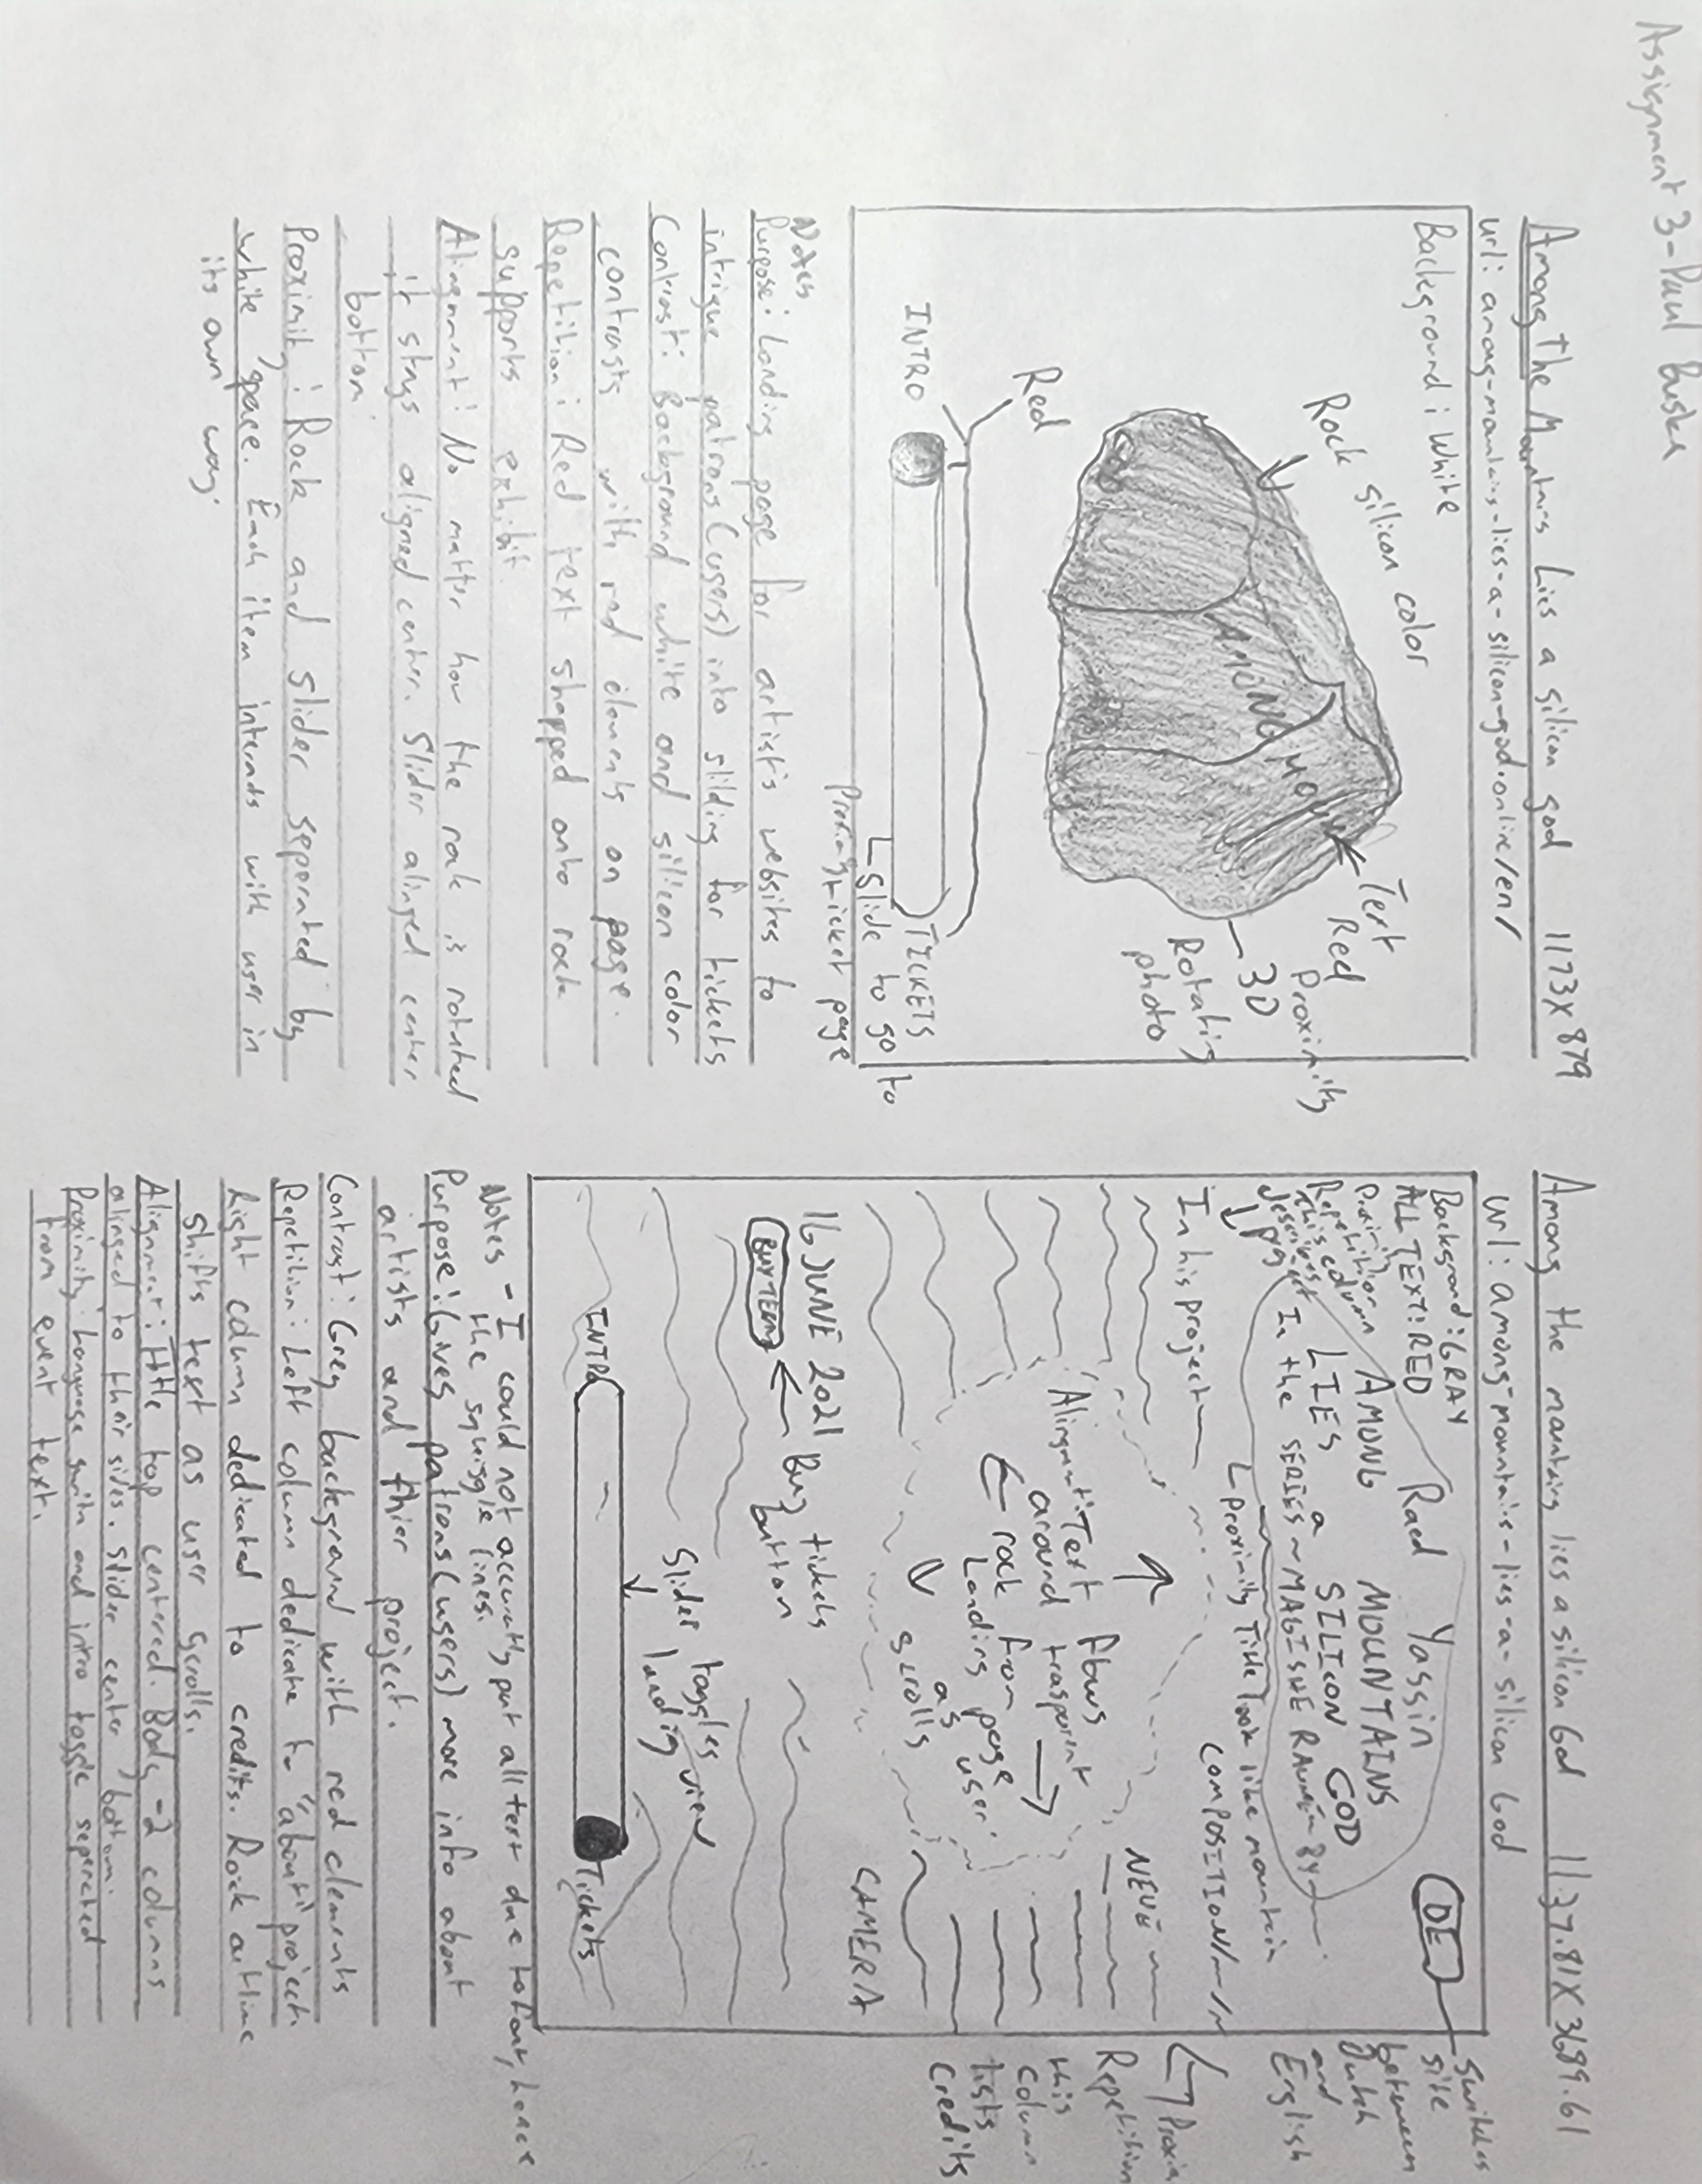 Assignment 3-Paul Buska
Among The Mountains Lies a silicon god 1173X879
url: among-mountains-lies-a-silicon-god.online/en/
Background: White
Rock silicon color
Text
Red
Proximity
3D
Rotating
photo
AMONG MOUN
Red
INTRO
TICKETS
Slide to go to
Proximity ticket page
Notes
Purpose: Landing page for artist's websites to
intrigue patrons (users) into sliding for tickets
Contrast: Background white and silicon color
contrasts with red elements on page.
Repetition: Red text shapped onto rock
supports exhibit.
Alingnment: No matter how the rock is rotated
it stays aligned center. Slider alinged center
bottom
Proximity: Rock and slider seperated by
white space. Each item interacts with user in
its own way.
Among the mountains lies a silicon God 1137.81X3689.61
url: among-mountains-lies-a-silicon God
Background: GRAY
ALL TEXT: RED
Proximity
Repetition
This column
describes
project
Raed Yassin
AMONG MOUNTAINS
LIES a SILICON GOD
In the SERIES ~ MAGISHE RAUME BY
DE
Switches
site
between
Dutch
and
English
Proximity Title look like mountain
COMPOSITION/
In his project
NEUE
Proxim
Repetition
this
column
lists
credits
Alingment: Text flows
around trasparent
rock from
Landing page
as user
scrolls
CAMERA
16 JUNE 2021
Buy tickets
button
Slider toggles
landig view
INTRO
Tickets
Notes - I could not accuratly put all text due to font, hence
the squiggle lines.
Purpose: Gives patrons (users) more info about
artists and thier project.
Contrast: Grey background with red elements
Repetition: Left column dedicate to "about" project.
Right column dedicated to credits. Rock outline
shifts text as user scrolls.
Alignment: Title top centered. Body -2 columns
alinged to their sides. Slider center bottom.
Proximity: Language and intro toggle seperated
from event text.